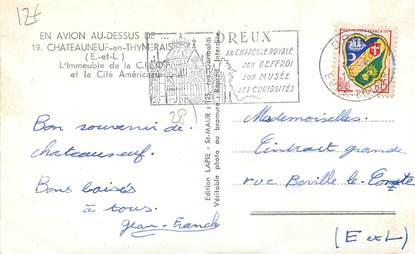 12€
EN AVION AU-DESSUS DE
19. CHATEAUNEUF-en-THYMERAIS
(E.-et-L.)
L'Immeuble de la
et la Cité Américaine
DREUX
SA CHAPELLE ROYALE
SON BEFFROI
SON MUSÉE
SES CURIOSITÉS
28
0,15
Edition LAPIE - St-MAUR
Véritable photo au bromure - Reprod. Interdite
Bon souvenir de
chateauneuf.
Bons baisés
à tous.
Jean-Franck
Mademoiselles
grande
rue Boville le-Comte
(E et L)